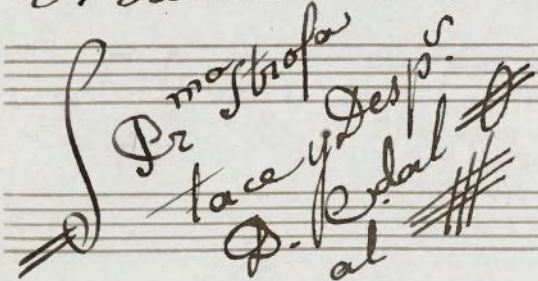 Pr mo Strofa
tace y Desp.s
P. e dal
al